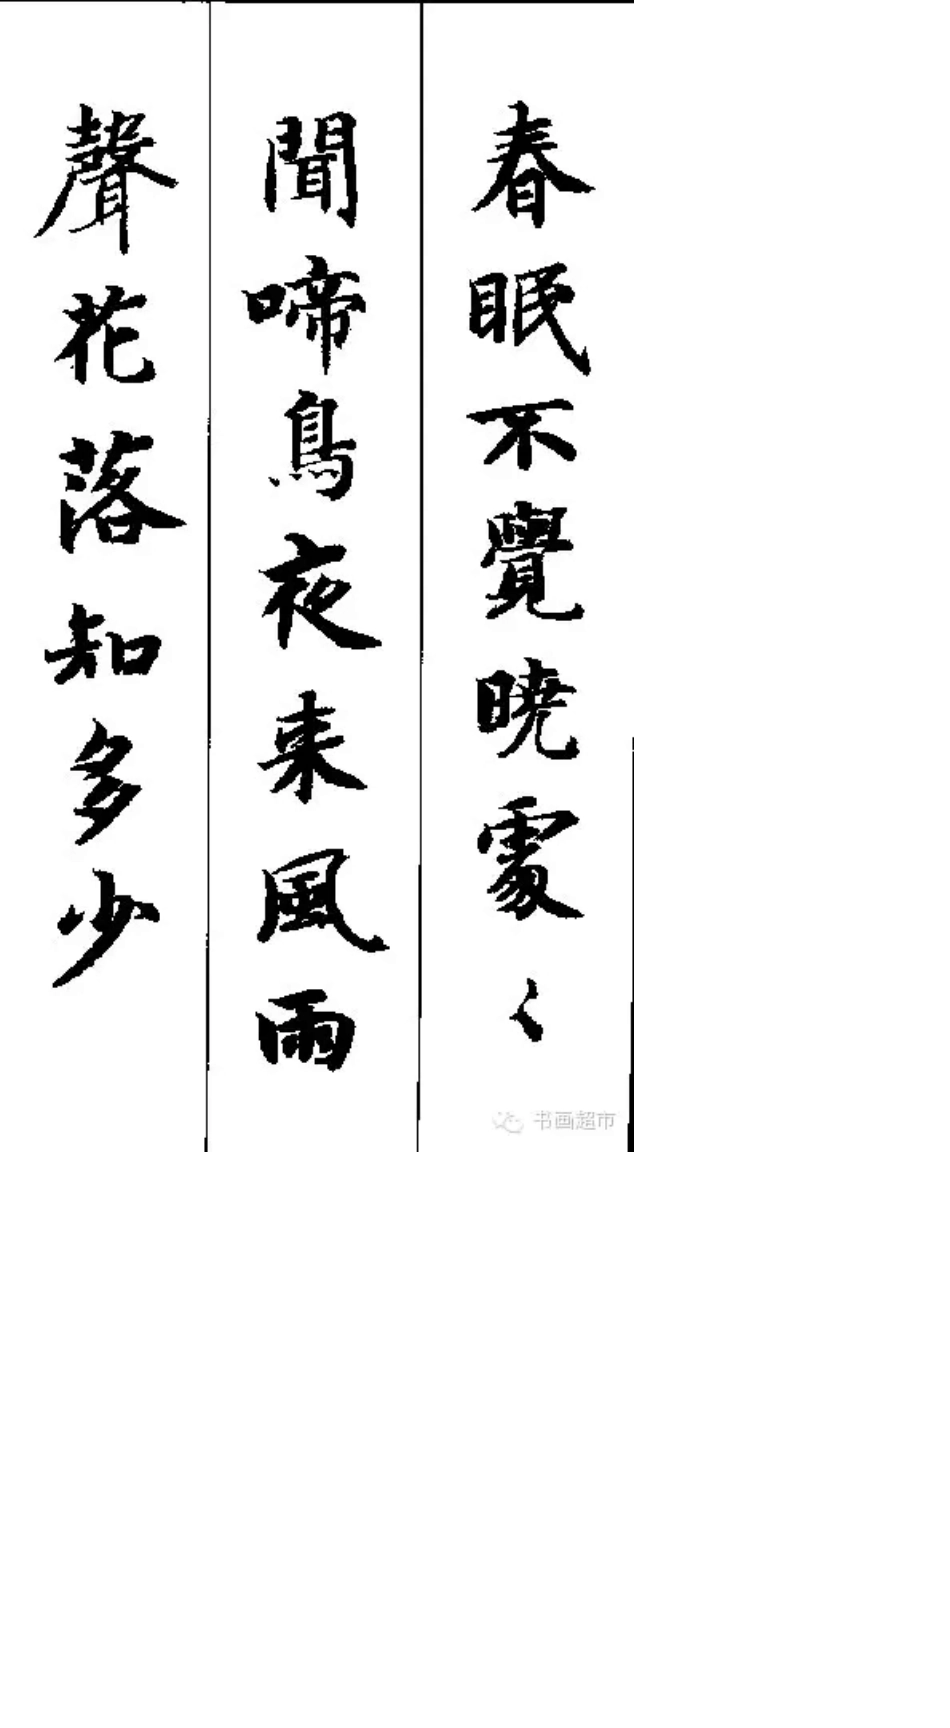 春眠不覺曉處〻
聞啼鳥夜来風雨
聲花落知多少
书画超市